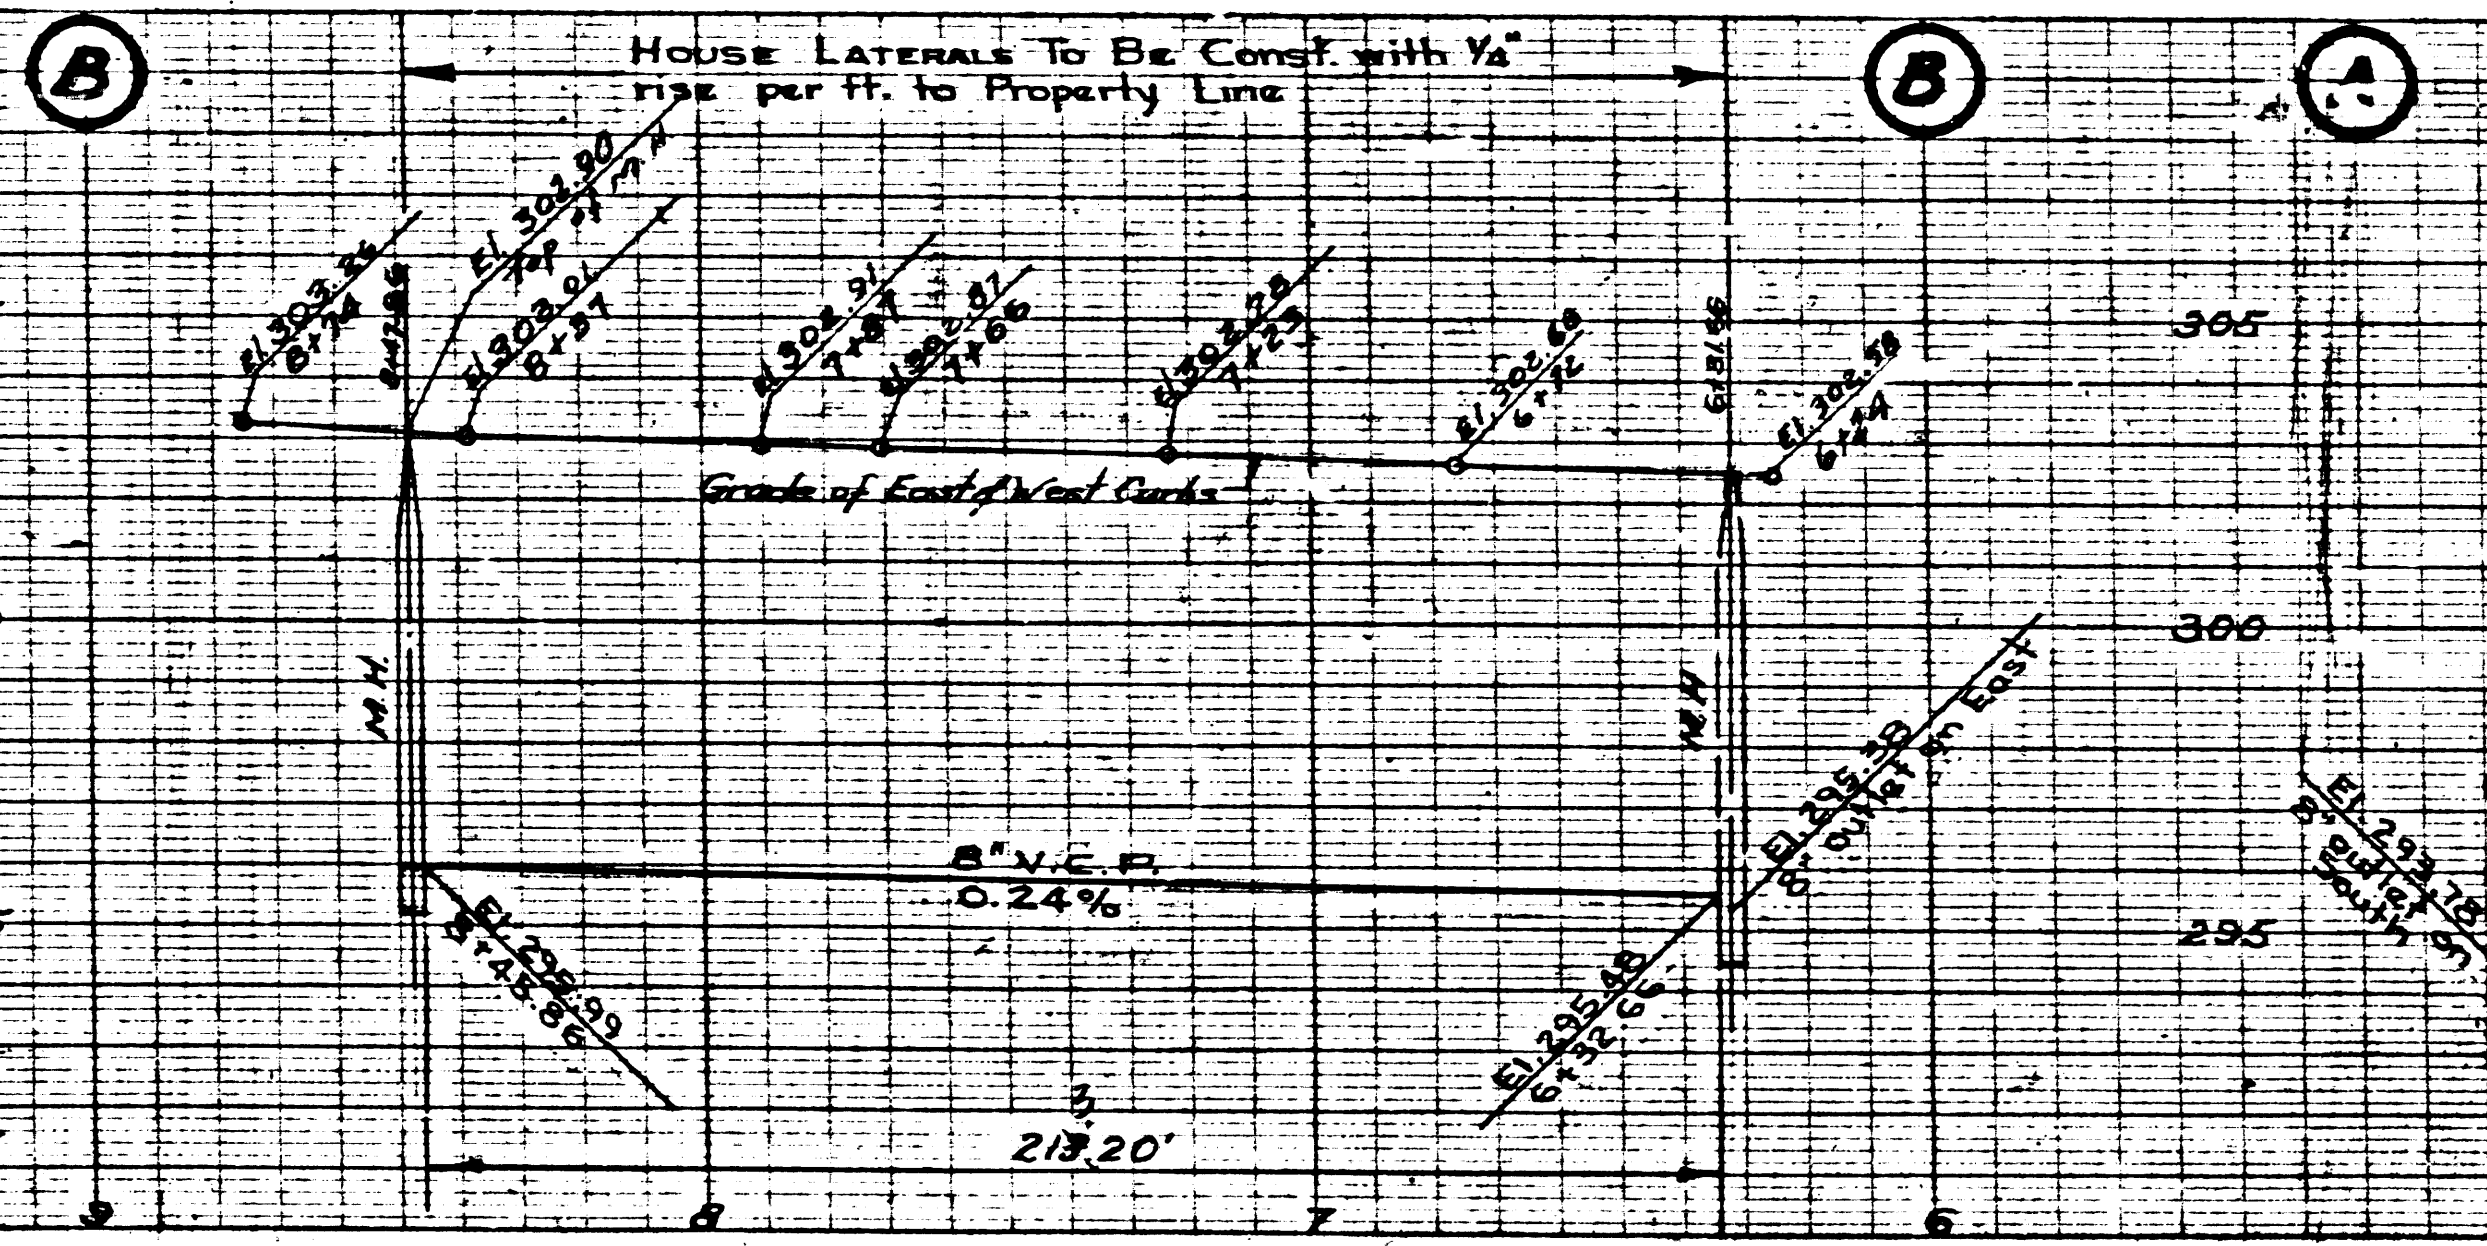 B
HOUSE LATERALS TO BE Const. with 1/4"
rise per ft. to Property Line
B
A
El. 303.26
8+74
8+47.86
El. 302.90
top of M.H
El. 303.01
8+37
El. 302.91
7+87
El. 302.87
7+66
El. 302.78
7+23
El. 302.68
6+72
El. 302.58
6+24
305
Grade of East & West Curbs
300
M.H.
M.H
El. 295.38
8" outlet on East
El. 293.78
8" outlet on
South
8" V.C.P.
0.24%
295
El. 295.99
8+45.86
El. 295.48
6+32.66
3
213.20'
9
8
7
6